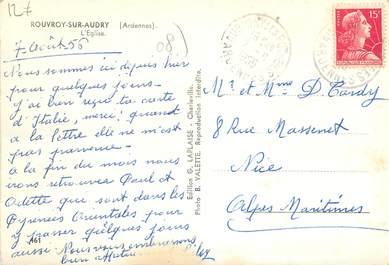 ROUVROY-SUR-AUDRY (Ardennes).
L'Eglise.
7 Août 56
Nous sommes ici depuis hier
pour quelques jours -
j'ai bien reçu ta carte
d'Italie, merci, quant
à la lettre elle ne m'est
pas parvenue -
à la fin du mois nous
irons retrouver Paul et
Odette qui sont dans les
Pyrénées Orientales pour
y passer quelques jours
aussi. Nous vous embrassons
bien affectueusement
A61
Edition G. LAPLAISE - Charleville.
Photo B. VALETTE. Reproduction Interdite.
15F
Mr et Mme D. Cardy
8 Rue Massenet
Nice
Alpes Maritimes